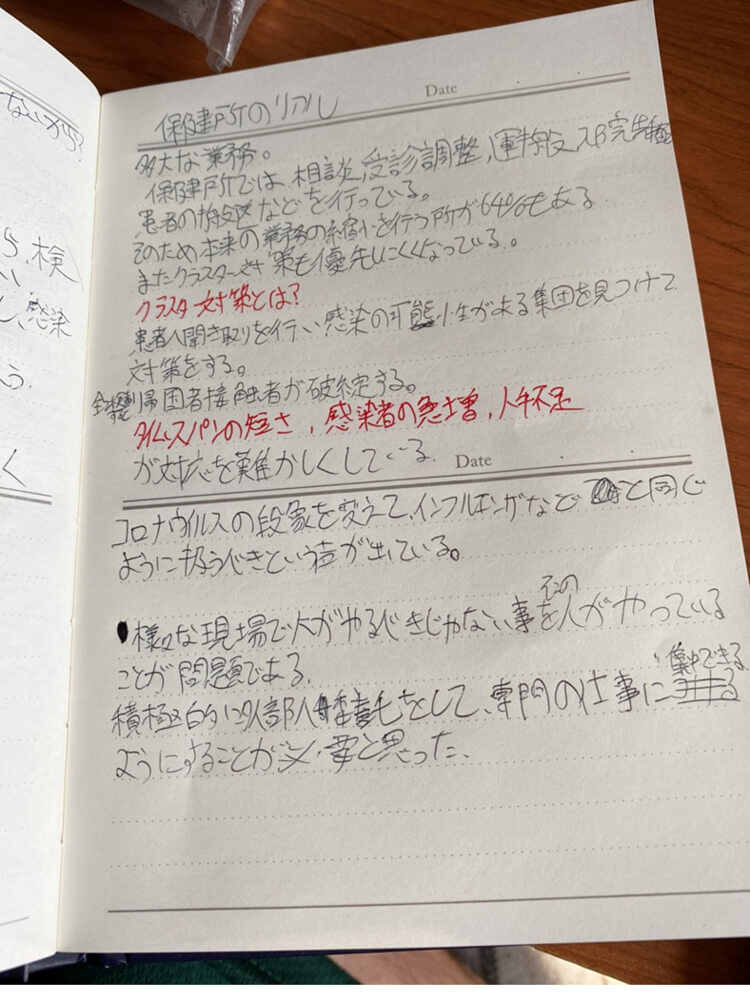 ないから?
検
い
し、感染
う
く
Date
保健所のリアル
多大な業務。
保健所では、相談、受診調整、運搬、入院先
患者の搬送などを行っている。
そのため本来の業務の縮小を行う所が64%もある
またクラスター対策も優先しにくくなっている。
クラスタ対策とは?
患者へ聞き取りを行い感染の可能性がある集団を見つけて
対策をする。
帰国者接触者が破綻する。
タイムスパンの短さ,感染者の急増,人手不足
が対応を難かしくしている.
Date
コロナウイルスの段象を変えて、インフルエンザなどと同じ
ように扱うべきという声が出ている。
様々な現場で人がやるべきじゃない事をその人がやっている
ことが問題である.
積極的に外部へ委託をして、専門の仕事に集中できる
ようにすることが必要と思った、